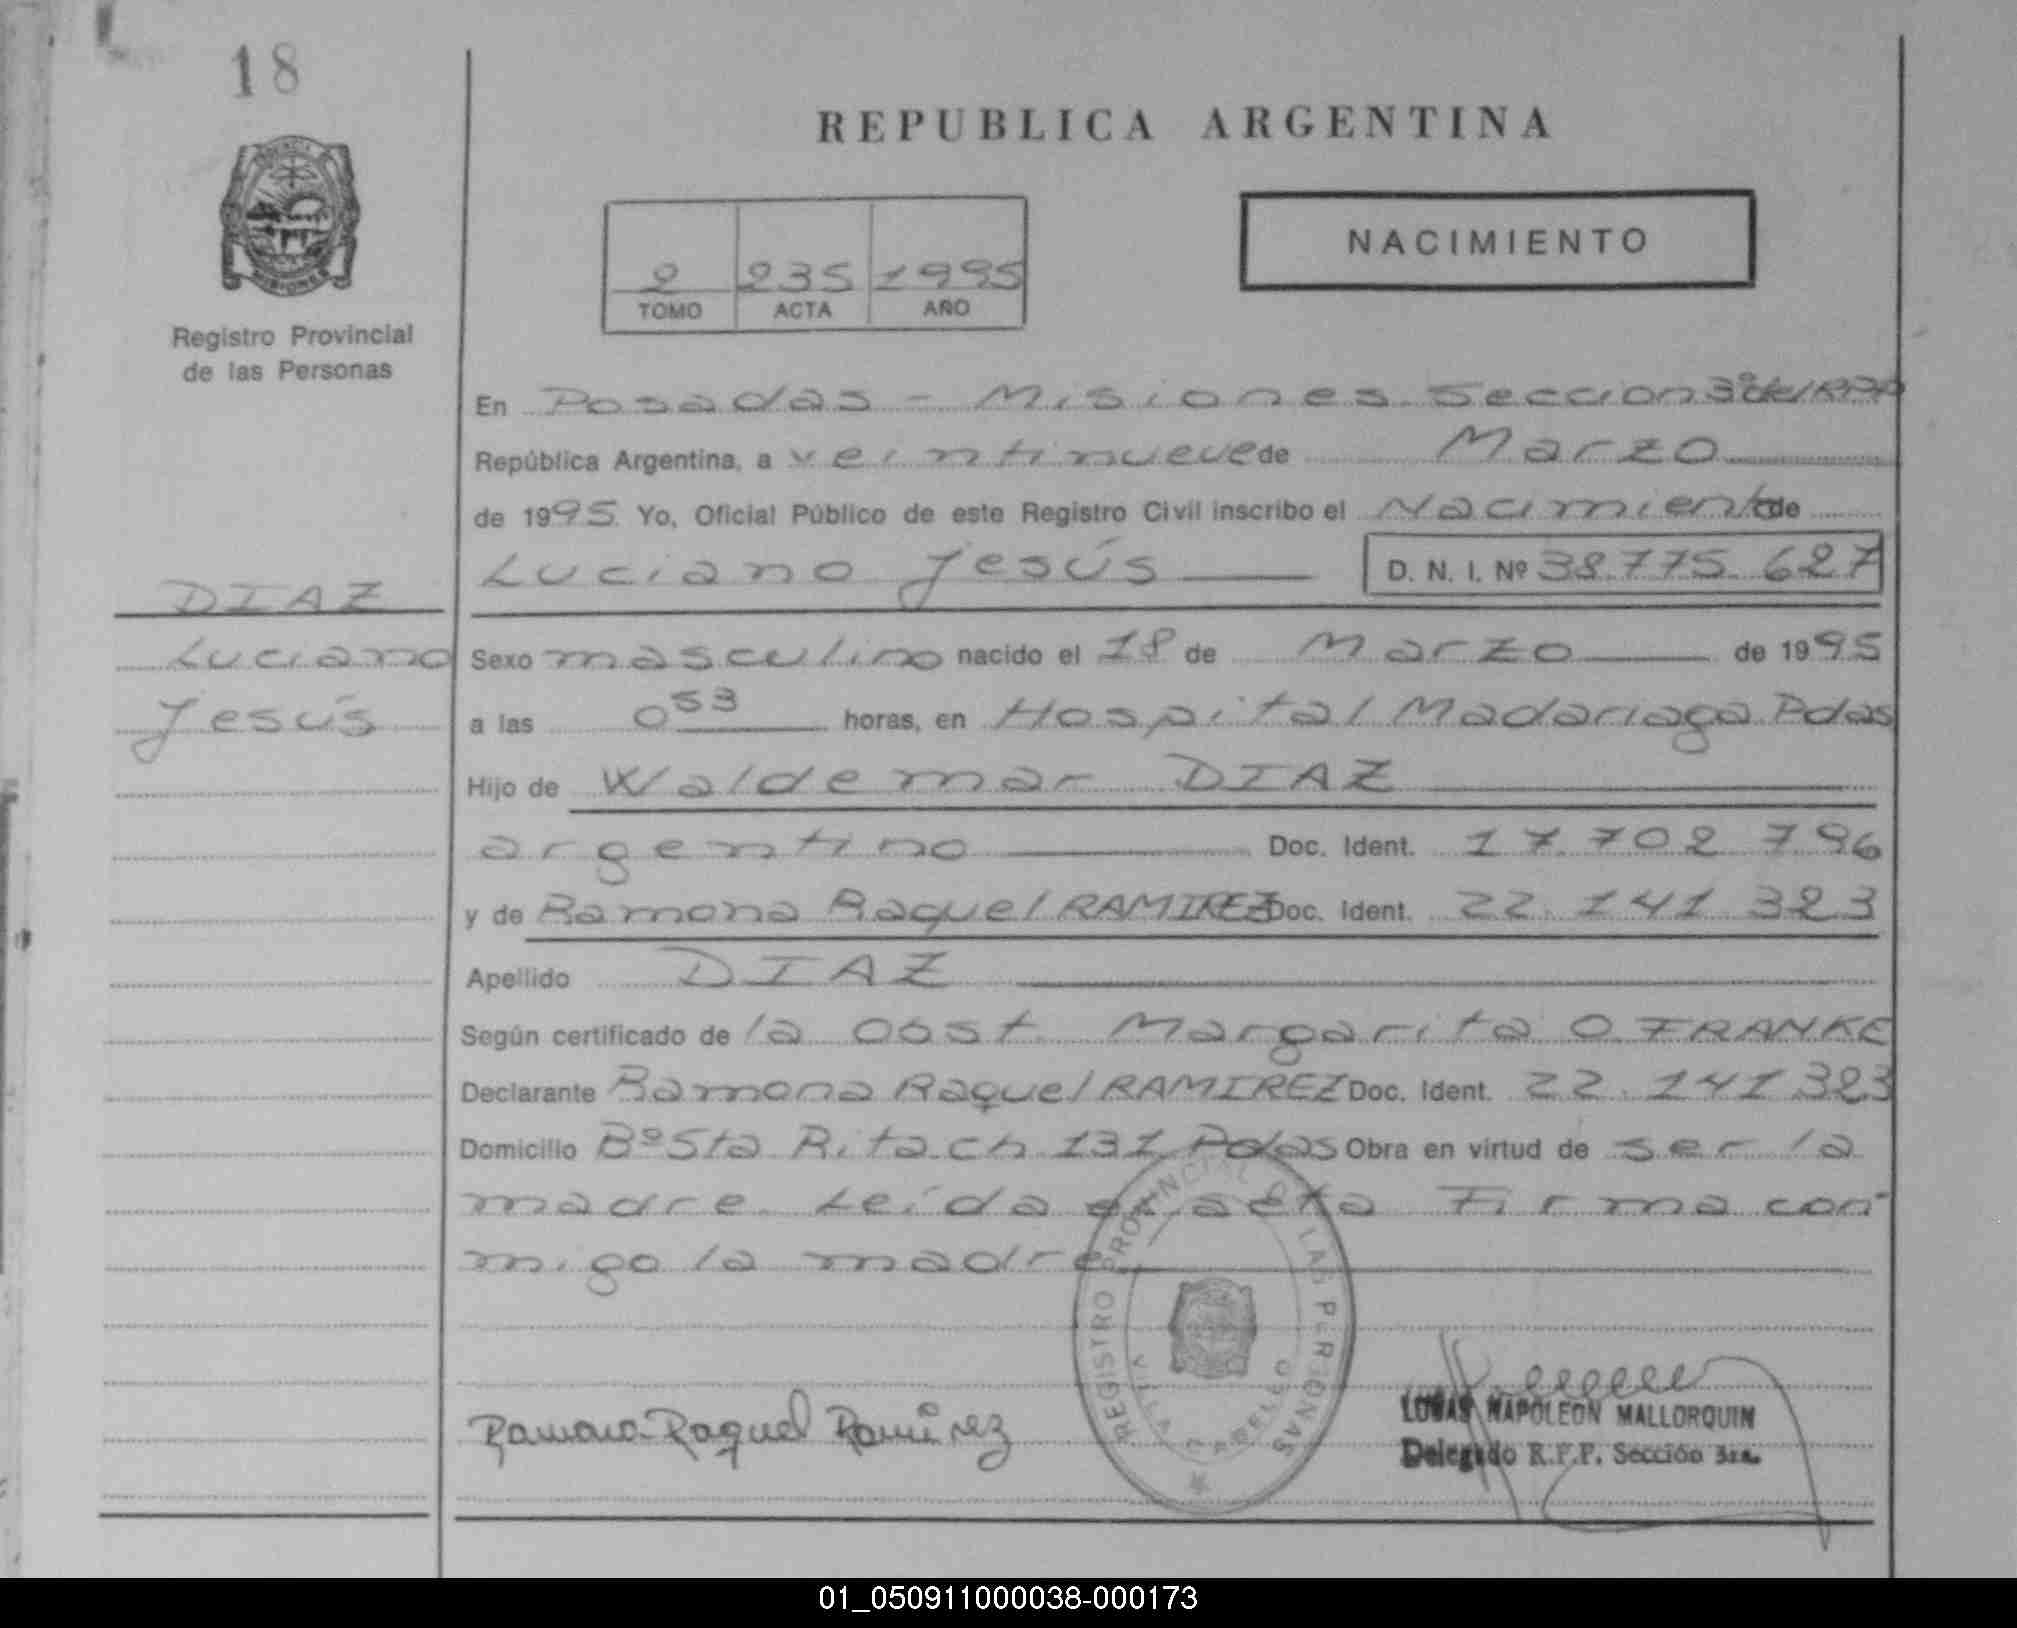 18
REPUBLICA ARGENTINA
NACIMIENTO
2 235 1995
TOMO ACTA AÑO
MISIONES
Registro Provincial
de las Personas
En Posadas - Misiones Seccion 3º del RPP
República Argentina, a veintinueve de Marzo
de 1995. Yo, Oficial Público de este Registro Civil inscribo el Nacimiento de
Luciano Jesús D. N. I. Nº 38.775.627
DIAZ
Luciano
Jesús
Sexo masculino nacido el 18 de Marzo de 1995
a las 0 53 horas, en Hospital Madariaga Pdas
Hijo de Waldemar DIAZ
argentino Doc. Ident. 17.702.796
y de Ramona Raquel RAMIREZ Doc. Ident. 22.141.323
Apellido DIAZ
Según certificado de la Obst. Margarita O. FRANKE
Declarante Ramona Raquel RAMIREZ Doc. Ident. 22.141.323
Domicilio Bº Sta Rita ch 131 Pdas Obra en virtud de ser la
madre. Leída el acta Firma con
migo la madre
REGISTRO PROVINCIAL D LAS PERSONAS
VILLA CABELLO
Ramona Raquel Ramirez
LUCAS NAPOLEON MALLORQUIN
Delegado R.P.P. Sección 3ra.
01_050911000038-000173